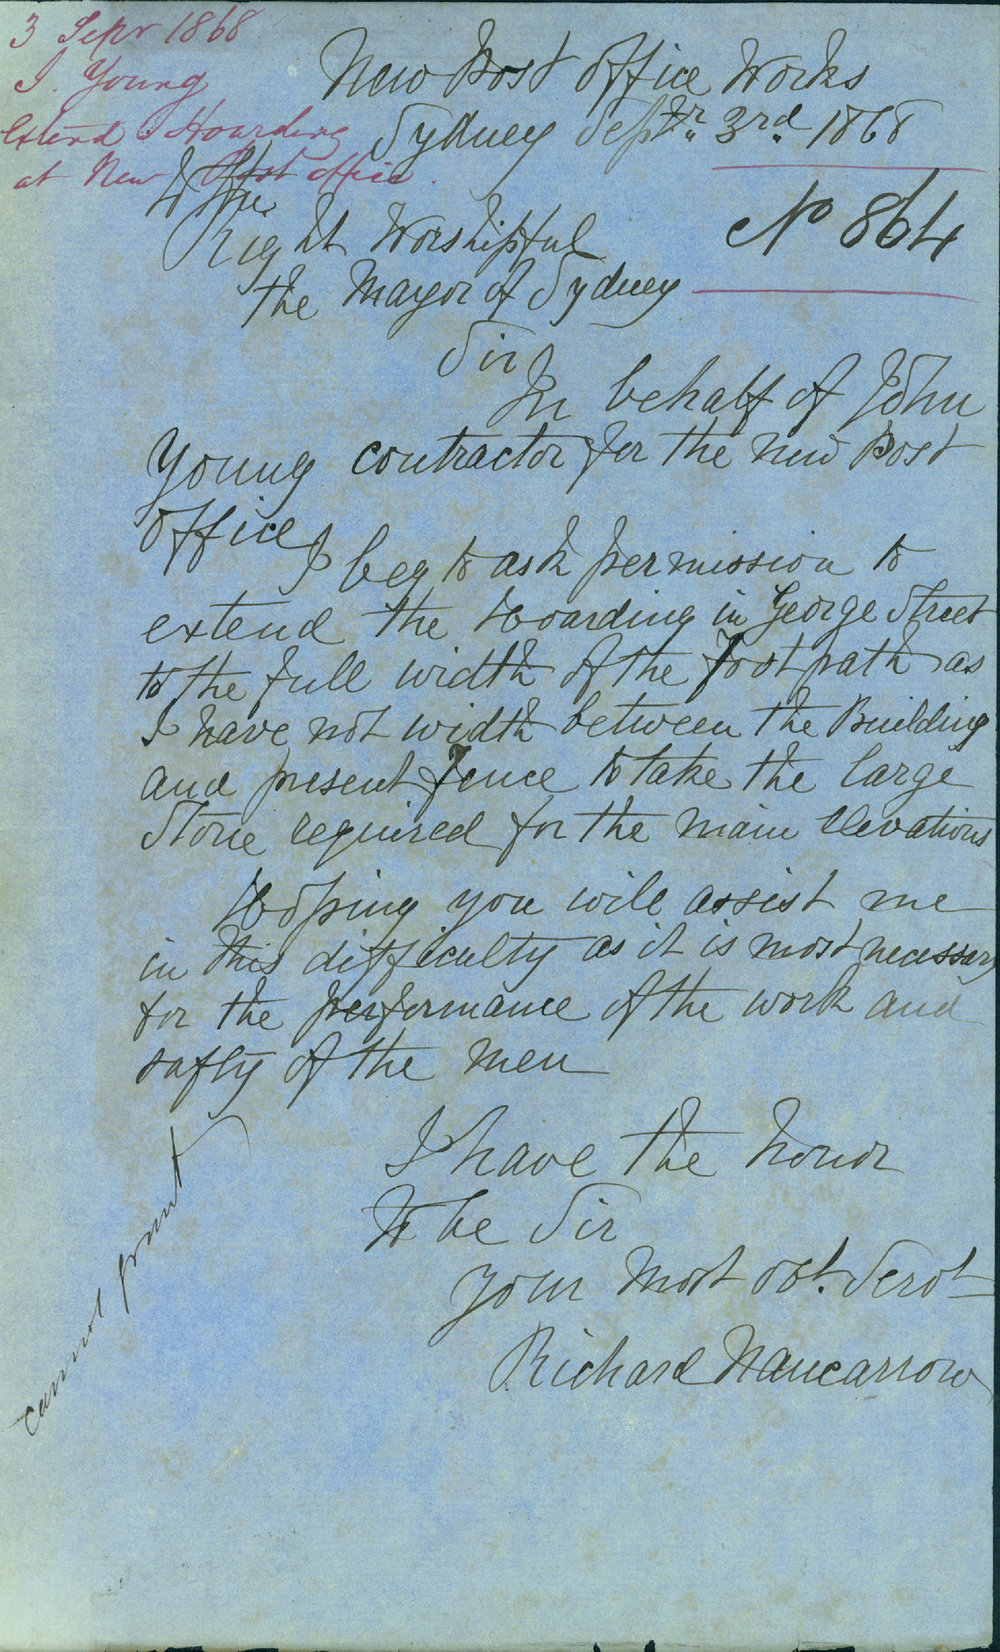 3 Sepr 1868
J. Young
extend Hoarding
at New Post office.
New Post office Works
Sydney Septr. 3rd. 1868
No 864
To the
Right Worshipful
the Mayor of Sydney
Sir
In behalf of John
Young contractor for the new Post
office
I beg to ask permission to
extend the Hoarding in George Street
to the full width of the Foot path as
I have not width between the Building
and present Fence to take the large
Stone required for the main Elevations
Hoping you will assist me
in this difficulty as it is most necessary
for the performance of the work and
safty of the men
I have the honor
to be Sir
your most obt. Servt
Richard Nancarrow
cannot grant